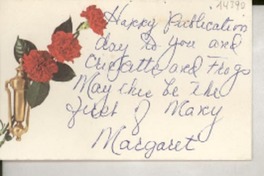 44390
Happy Publication
day to you and
Crickette and Frogs
May this be the
first of Many
Margaret